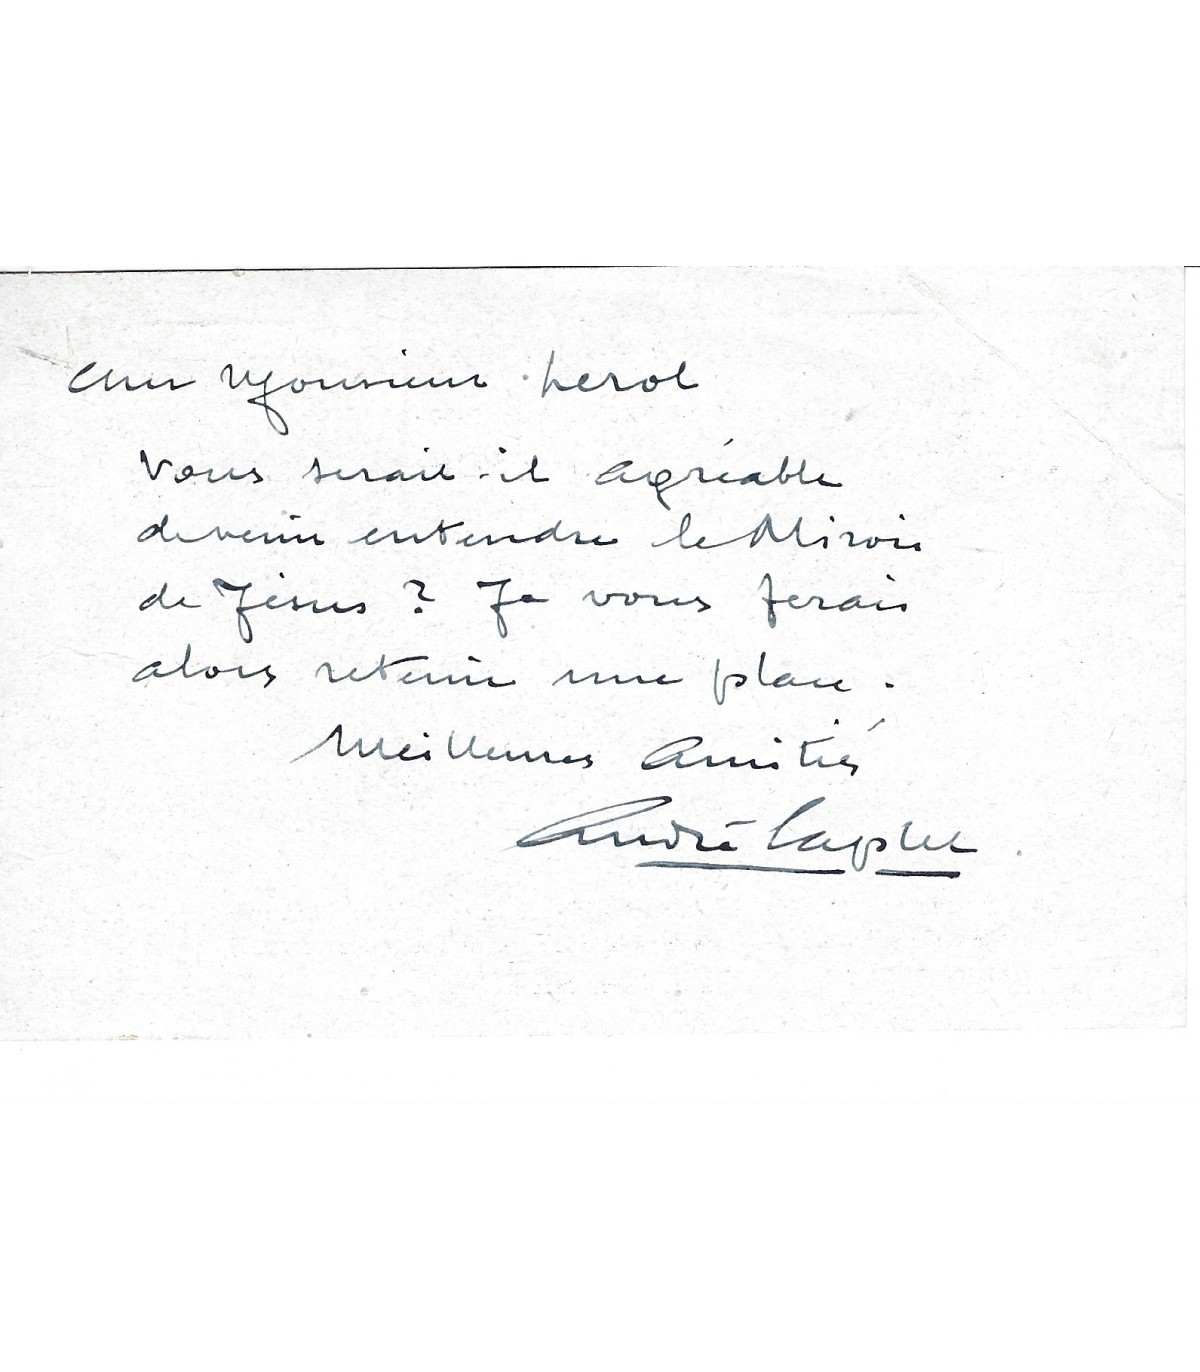 Cher Monsieur Lerol
Vous serait-il agréable
de venir entendre le Miroir
de Jésus ? Je vous ferais
alors retenir une place.
Meilleures Amitiés
André Caplet